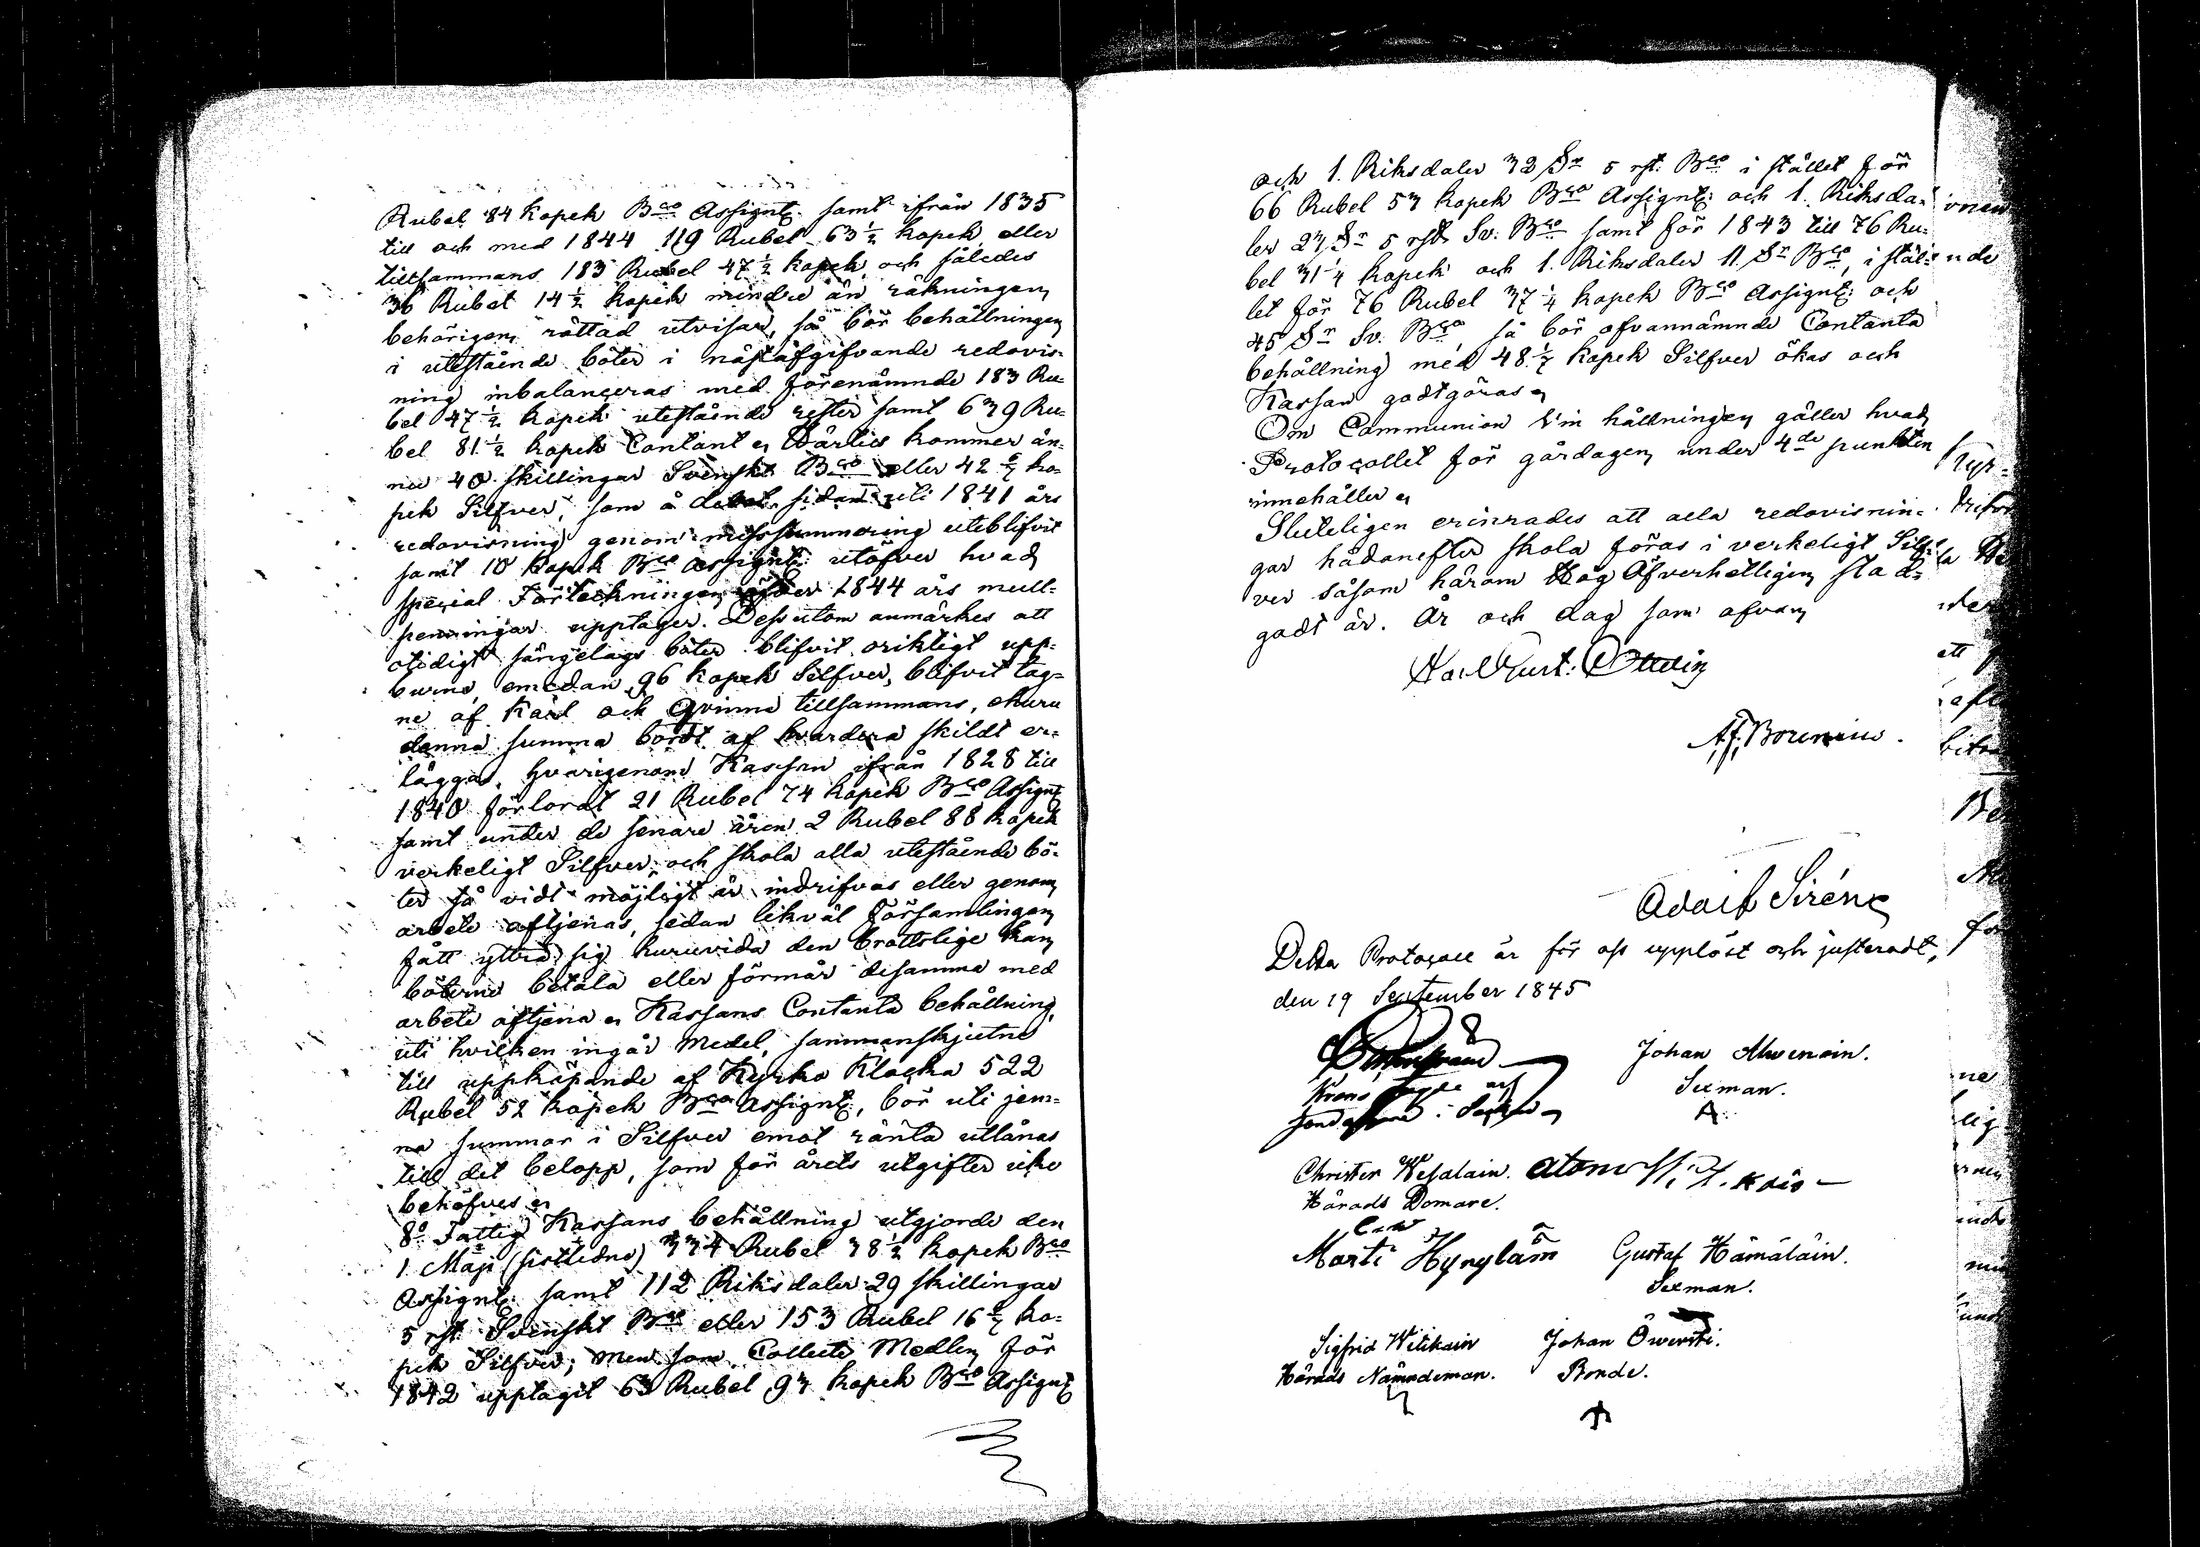 Rubel 84 kopek Bco Assignt: samt ifrån 1835
till och med 1844 119 Rubel 63 1/2 kopek eller
tillsammans 183 Rubel 47 1/2 kopek och således
36 Rubel 14 1/2 kopek mindre än räkningen
behörigen rättad utvisar, så bör behållningen
i utestående böter i nästafgifvande redovis-
ning inbalanceras med förenämnde 183 Ru-
bel 47 1/2 kopek utestående rester samt 639 Ru-
bel 81 1/2 kopek Contant. Härtill kommer än-
nu 40 skillingar Svenskt Bco eller 42 6/7 ko-
pek Silfver, som å sidan uti 1841 års
redovisning genom missummering uteblifvit
samt 10 kopek Bco Assignt: utöfver hvad
special Förteckningen öfver 1844 års mull-
penningar upptager. Dessutom anmärkes att
otidigt sängelags böter blifvit oriktigt upp-
burne, emedan 96 kopek Silfver, blifvit tag-
ne af Karl och Qvinna tillsammans, ehuru
denna summa bordt af hvardera skildt er-
läggas, hvarigenom Kassan ifrån 1828 till
1840 förlorat 21 Rubel 74 kopek Bco Assignt
samt under de senare åren 2 Rubel 88 kopek
verkeligt Silfver, och skola alla utestående bö-
ter så vidt möjligt är indrifvas eller genom
arbete aftjenas, sedan likväl Församlingen
fått yttra sig huruvida den brottslige kan
böterne betala eller förmår desamma med
arbete aftjena. Kassans Contanta behållning,
uti hvilken ingår Medel, sammanskjutne
till uppköpande af Kyrko Klocka 522
Rubel 52 kopek Bco Assignt, bör uti jem-
na summor i Silfver emot ränta utlånas
till det belopp, som för årets utgifter icke
behöfves.
8o Fattig Kassans behållning utgjorde den
1 Maji (sistledne) 334 Rubel 38 1/2 kopek Bco
Assignt: samt 112 Riksdaler 29 skillingar
5 rst Svenskt Bco eller 153 Rubel 16 2/7 ko-
pek Silfver; men som Collecte Medlen för
1842 upptagit 63 Rubel 93 kopek Bco Assignt
och 1. Riksdaler 32 Sr 5 rst. Bco i stället för
66 Rubel 53 kopek Bco Assignt: och 1. Riksda-
ler 27 Sr 5 rst Sv: Bco samt för 1843 till 76 Ru-
bel 31 1/4 kopek och 1. Riksdaler 11 Sr Bco, i stäl-
let för 76 Rubel 37 1/4 kopek Bco Assignt: och
45 Sr Sv. Bco så bör ofvannämnde Contanta
behållning med 48 1/7 kopek Silfver ökas och
Kassan godtgöras.
Om Communion hållningen gäller hvad
Protocollet för gårdagen under 4de punkten
innehåller.
Sluteligen erinrades att alla redovisnin-
gar hädanefter skola föras i verkeligt Silf-
ver såsom härom Hög Öfverhetligen stad-
gadt är. År och dag som ofvan
Adolf Sirén
Detta Protocoll är för oss uppläst och justeradt,
den 19 September 1845
Krono
Johan
Sexman.
Christer Wesalain.
Härads Domare.
Marti
Gustaf Hämäläin.
Sexman.
Sigfrid Witikain
Härads Nämndeman.
Johan
Bonde.